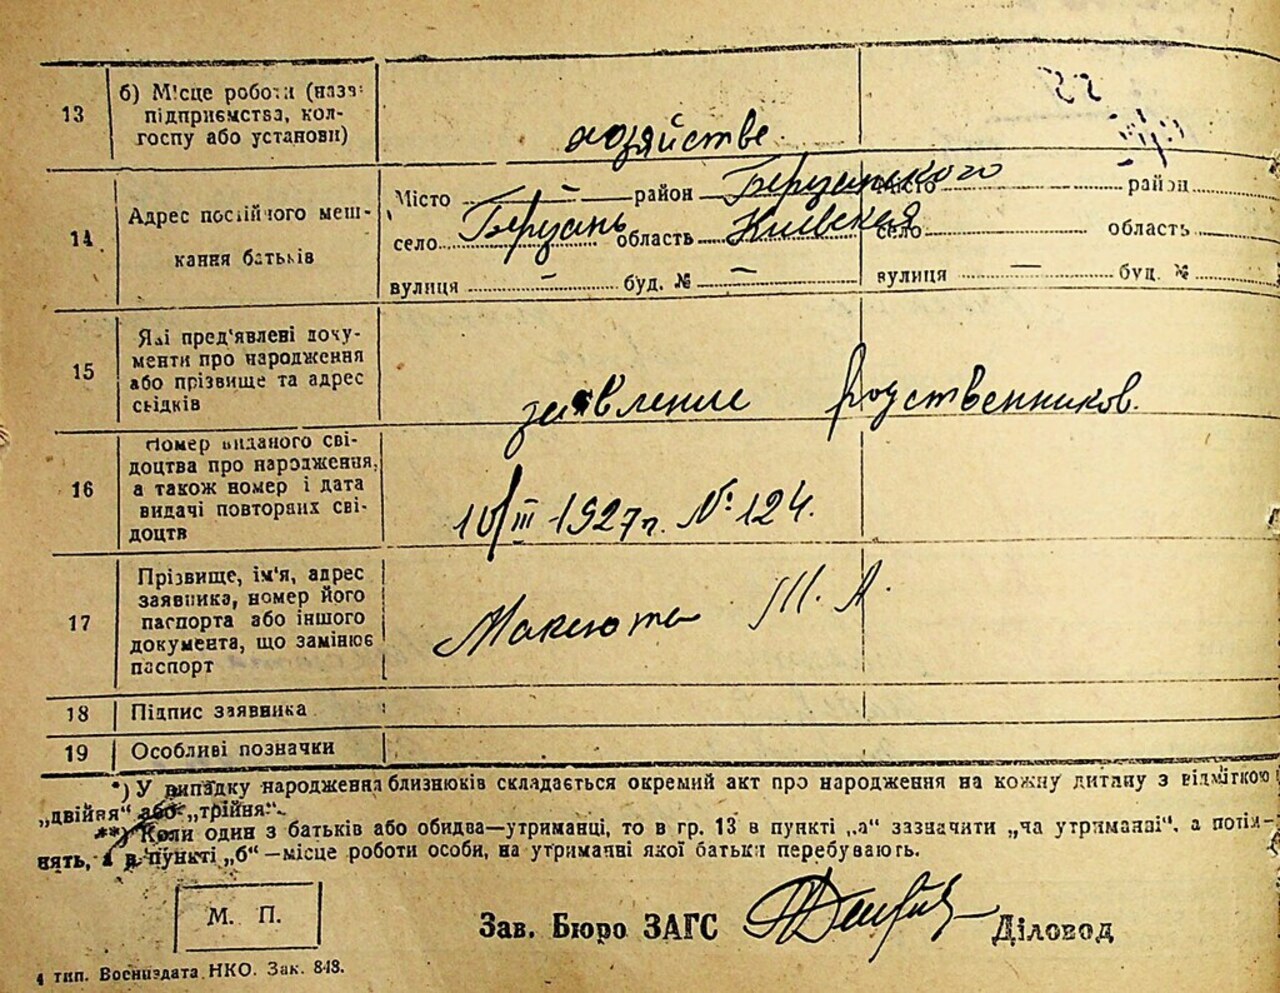 13
б) Місце роботи (назва
підприємства, кол-
госпу або установи)
хозяйстве.
14
Адрес постійного меш-
кання батьків
Місто — район Березанського
село Березань область Киевская
вулиця — буд. № —
місто район
село область
вулиця — буд. №
15
Які пред'явлені доку-
менти про народження
або прізвище та адрес
свідків
заявление родственников.
16
Номер виданого сві-
доцтва про народження,
а також номер і дата
видачі повторних сві-
доцтв
10/III 1927г. № 124.
17
Прізвище, ім'я, адрес
заявника, номер його
паспорта або іншого
документа, що замінює
паспорт
Максюта Т. А.
18
Підпис заявника
19
Особливі позначки
*) У випадку народження близнюків складається окремий акт про народження на кожну дитину з відміткою
„двійня“ або „трійня“.
**) Коли один з батьків або обидва—утриманці, то в гр. 13 в пункті „а“ зазначити „на утриманні“, а потім
нять, а в пункті „б“—місце роботи особи, на утриманні якої батьки перебувають.
М. П.
Зав. Бюро ЗАГС Діловод
4 тип. Воениздата НКО. Зак. 848.